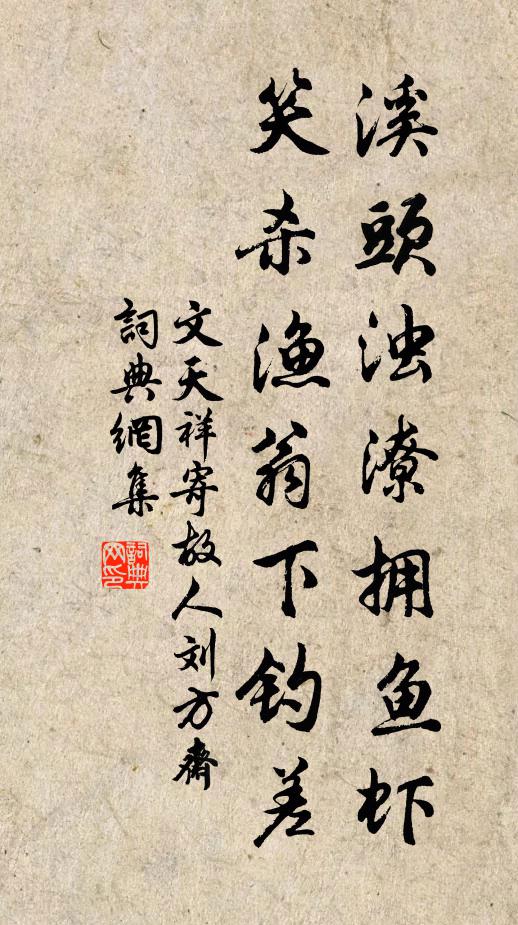 溪頭浊潦拥鱼虾
笑杀渔翁下钓差
文天祥寄故人刘方齋
詞典網集
詞典网印